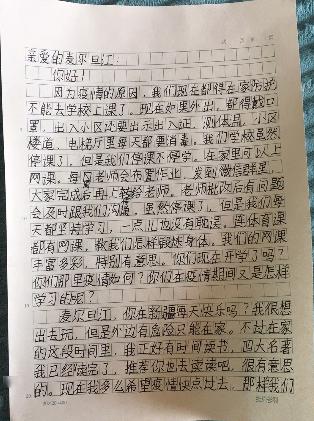 亲爱的麦尔旦江:
你好!
因为疫情的原因,我们现在都得在家所以
不能去学校上课了。现在如果外出,都得戴口
罩,出入小区还要出示出入证,测体温,小区
楼道、电梯厅里每天都要消毒。我们学校虽然
停课了,但是我们停课不停学。在家里可以上
网课,每日老师会布置作业,发到微信群里,
大家完成后再上传给老师。老师批改后有问题
会及时跟我们沟通,虽然停课了,但是我们每
天都坚持学习,一点儿也没有耽误。连体育课
都有网课,教我们怎样锻炼身体。我们的网课
丰富多彩,特别有意思。你们现在开学了吗?
你们那里疫情如何?你们在疫情期间又是怎样
学习的呢?
麦尔旦江,你在新疆每天快乐吗?我很想
出去玩,但是外边有危险只能在家。不过在家
的这段时间里,我正好有时间读书,四大名著
我已经读完了,推荐你也去读读吧,很有意思
的。现在我多么希望疫情快点过去,那样我们